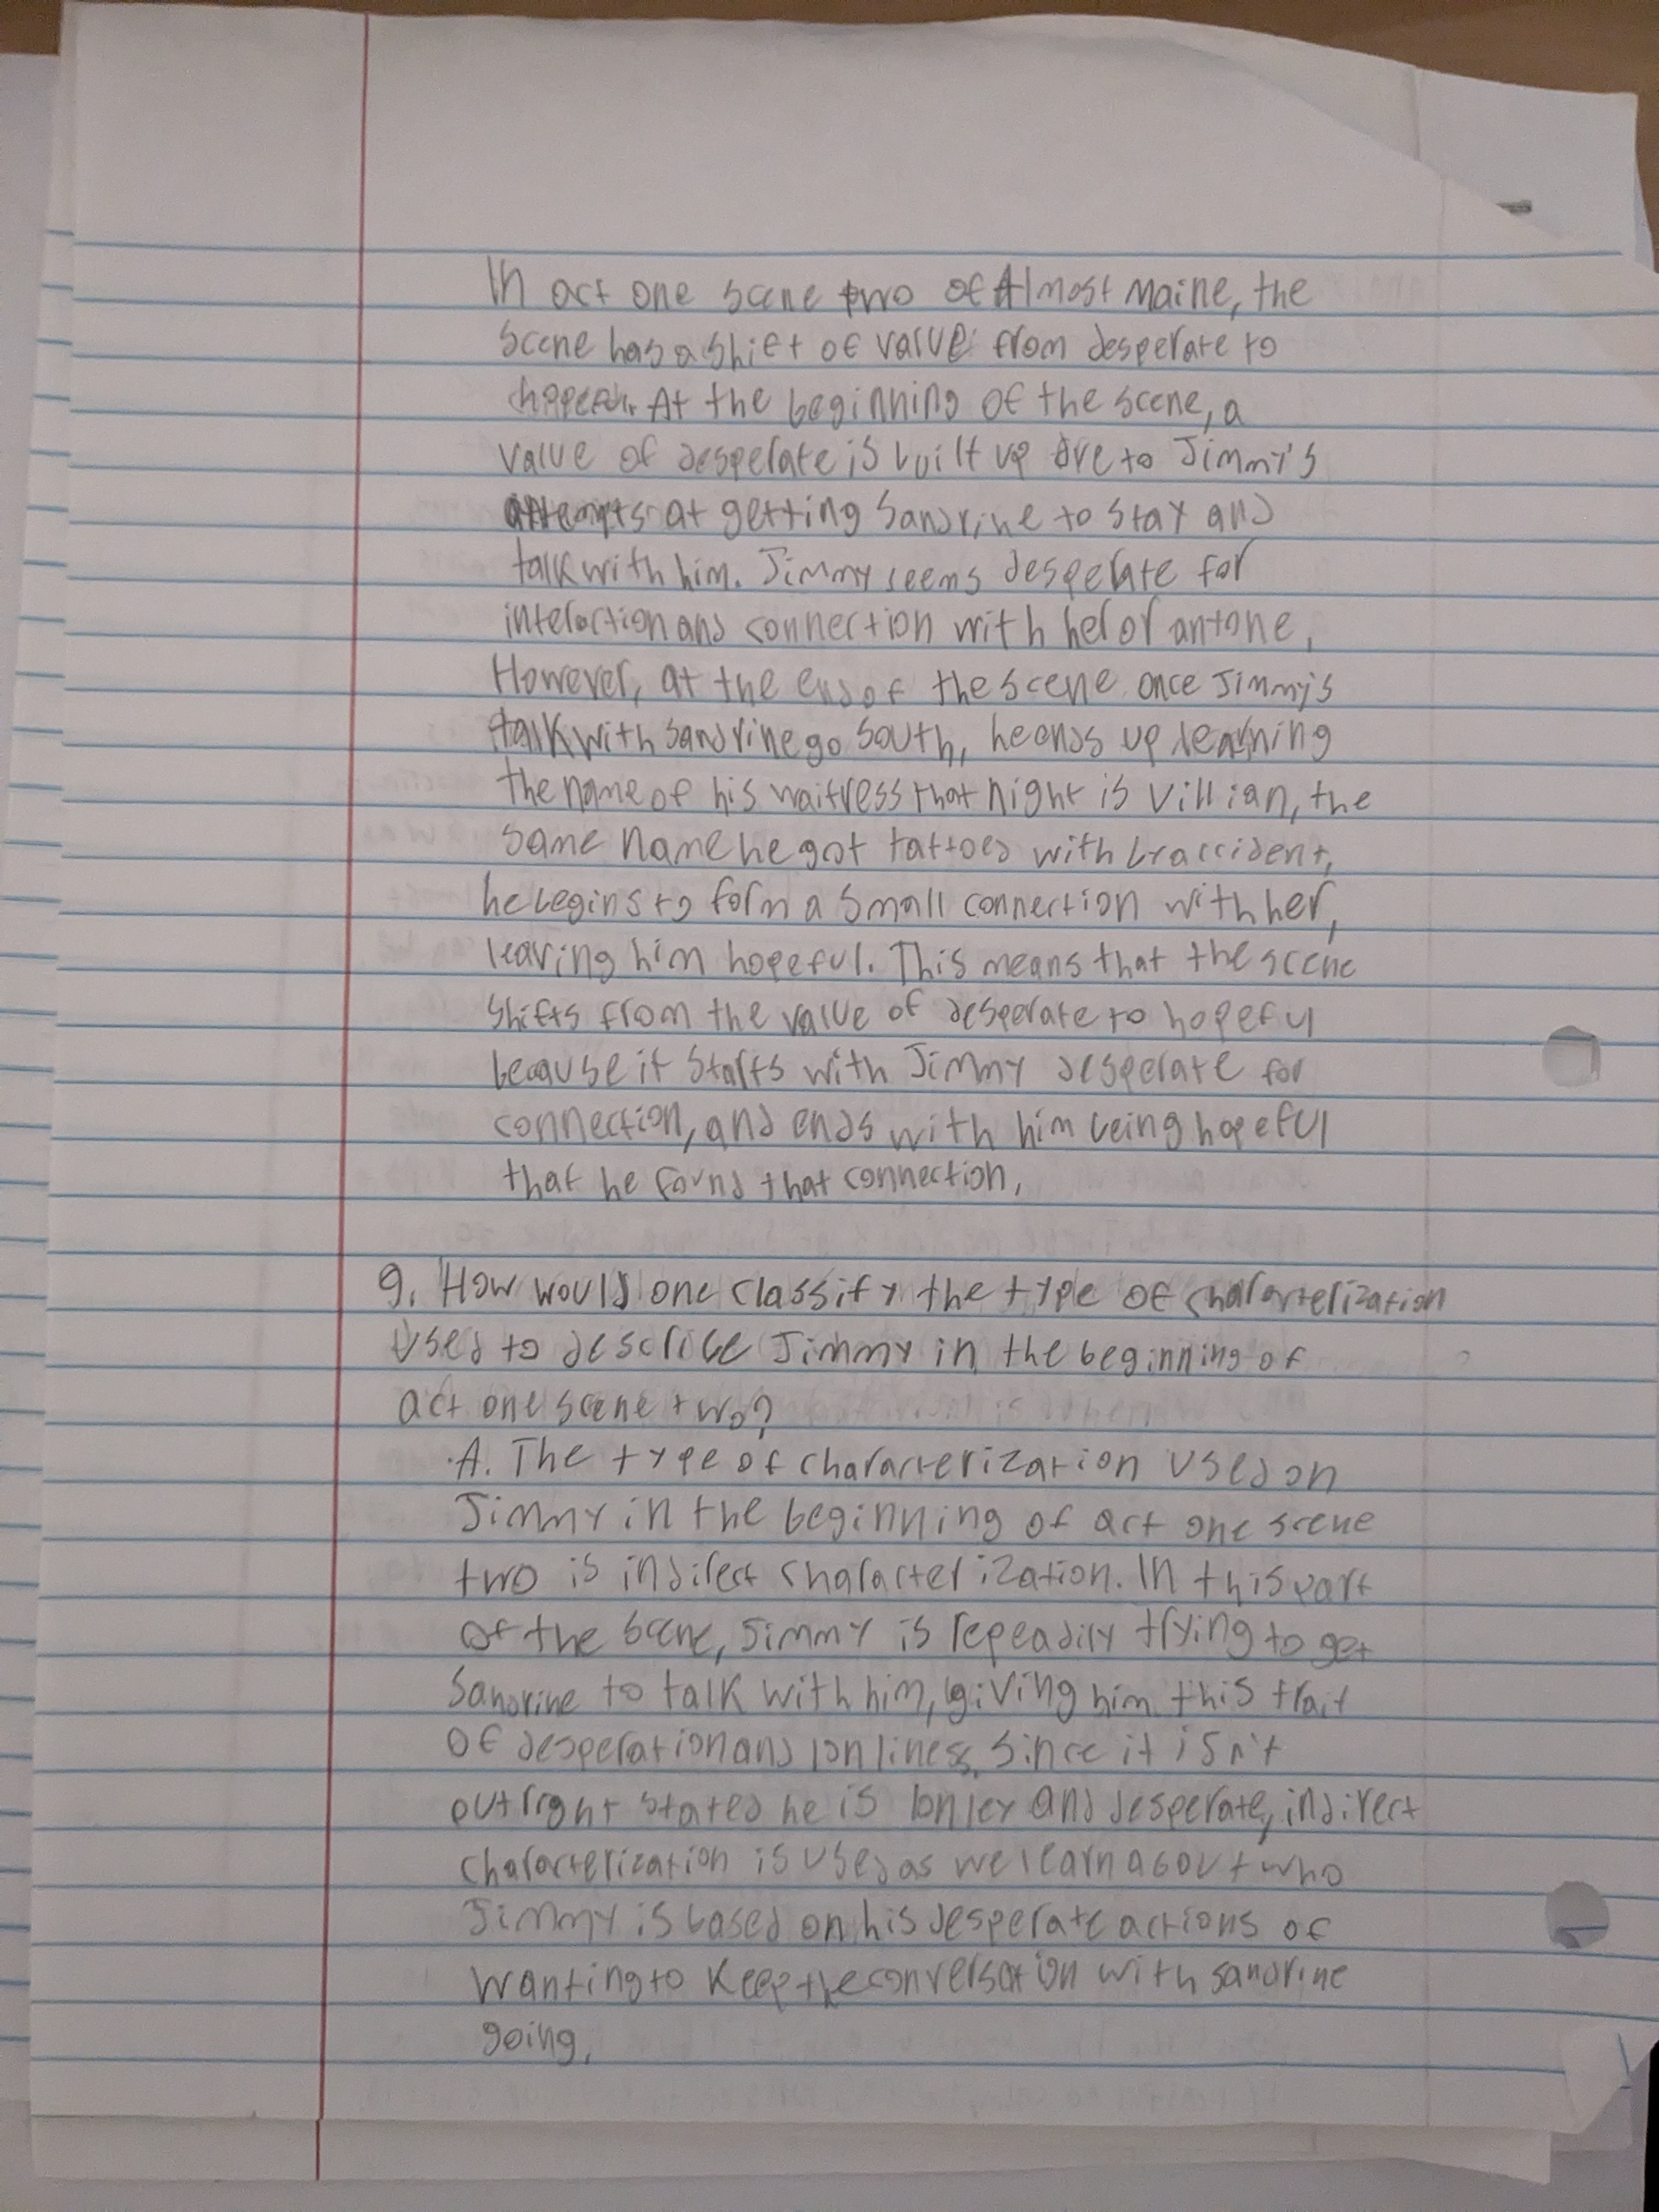 In act one scene two of Almost Maine, the
scene has a shift of value from desperate to
hopeful. At the beginning of the scene, a
value of desperate is built up due to Jimmy's
attempts at getting Sandrine to stay and
talk with him. Jimmy seems desperate for
interaction and connection with her or anyone.
However, at the end of the scene once Jimmy's
talk with Sandrine go south, he ends up learning
the name of his waitress that night is Villian, the
same name he got tattoed with by accident,
he begins to form a small connection with her,
leaving him hopeful. This means that the scene
shifts from the value of desperate to hopeful
because it starts with Jimmy desperate for
connection, and ends with him being hopeful
that he found that connection.
9. How would one classify the type of characterization
used to describe Jimmy in the beginning of
act one scene two?
A. The type of characterization used on
Jimmy in the beginning of act one scene
two is indirect characterization. In this part
of the scene, Jimmy is repeadily trying to get
Sandrine to talk with him, giving him this trait
of desperation and lonliness. Since it isn't
outright stated he is lonley and desperate, indirect
characterization is used as we learn about who
Jimmy is based on his desperate actions of
wanting to keep the conversation with sandrine
going.